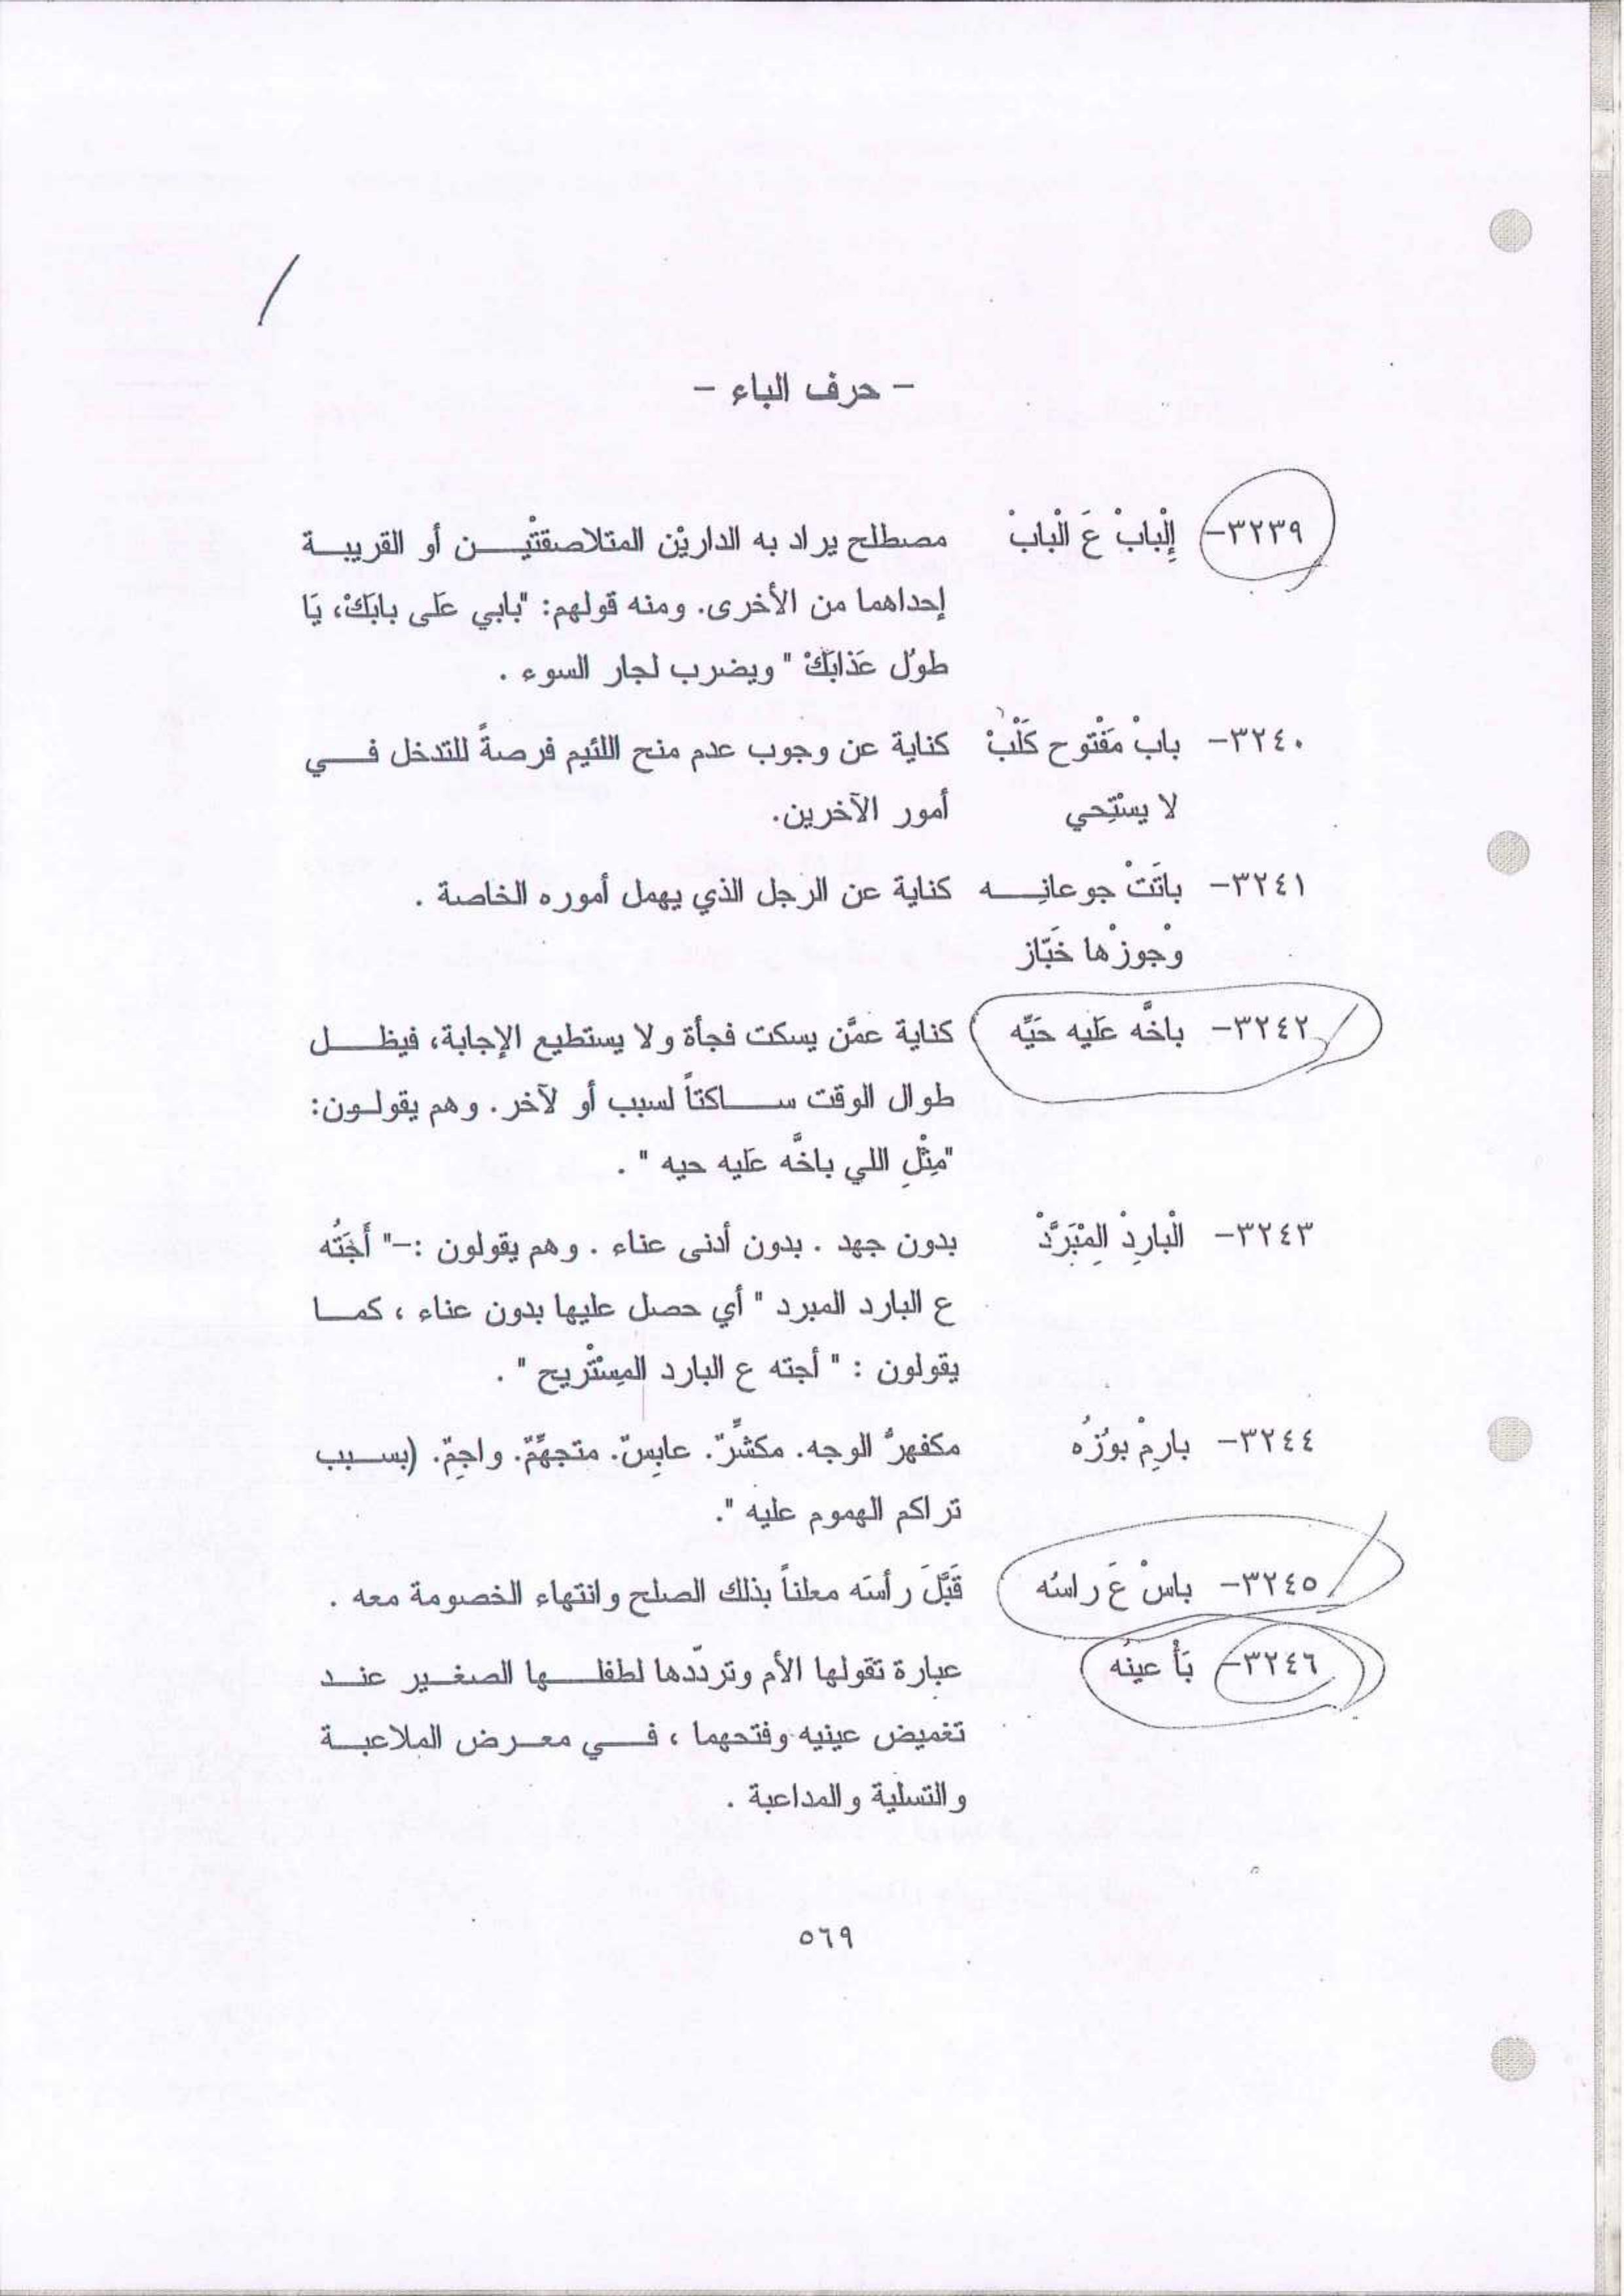 - حرف الباء -
٣٢٣٩- إِلْبابْ عَ الْبابْ مصطلح يراد به الداريْن المتلاصقتْين أو القريبة
إحداهما من الأخرى. ومنه قولهم: "بابي عَلى بابَكْ، يَا
طولْ عَذابَكْ" ويضرب لجار السوء .
٣٢٤٠- بابْ مَفْتوح كَلْبْ كناية عن وجوب عدم منح اللئيم فرصةً للتدخل في
لا يسْتِحي أمور الآخرين.
٣٢٤١- باتَتْ جوعانِه كناية عن الرجل الذي يهمل أموره الخاصة .
وْجوزْها خَبّاز
٣٢٤٢- باخَّه عَليه حَيِّه كناية عمَّن يسكت فجأة ولا يستطيع الإجابة، فيظل
طوال الوقت ساكتاً لسبب أو لآخر. وهم يقولون:
"مِثْلِ اللي باخَّه عَليه حيه " .
٣٢٤٣- الْبارِدْ المِْبَرَّدْ بدون جهد . بدون أدنى عناء . وهم يقولون :-" أَجَتُه
ع البارد المبرد " أي حصل عليها بدون عناء ، كما
يقولون : " أجته ع البارد المِسْتْريح " .
٣٢٤٤- بارِمْ بوُزُه مكفهرُّ الوجه. مكشِّرٌ. عابِسٌ. متجهِّمٌ. واجِمٌ. (بسبب
تراكم الهموم عليه ".
٣٢٤٥- باسْ عَ راسُه قَبَّلَ رأسَه معلناً بذلك الصلح وانتهاء الخصومة معه .
٣٢٤٦- بَأْ عينُه عبارة تقولها الأم وتردّدها لطفلها الصغير عند
تغميض عينيه وفتحهما ، في معرض الملاعبة
والتسلية والمداعبة .
٥٦٩